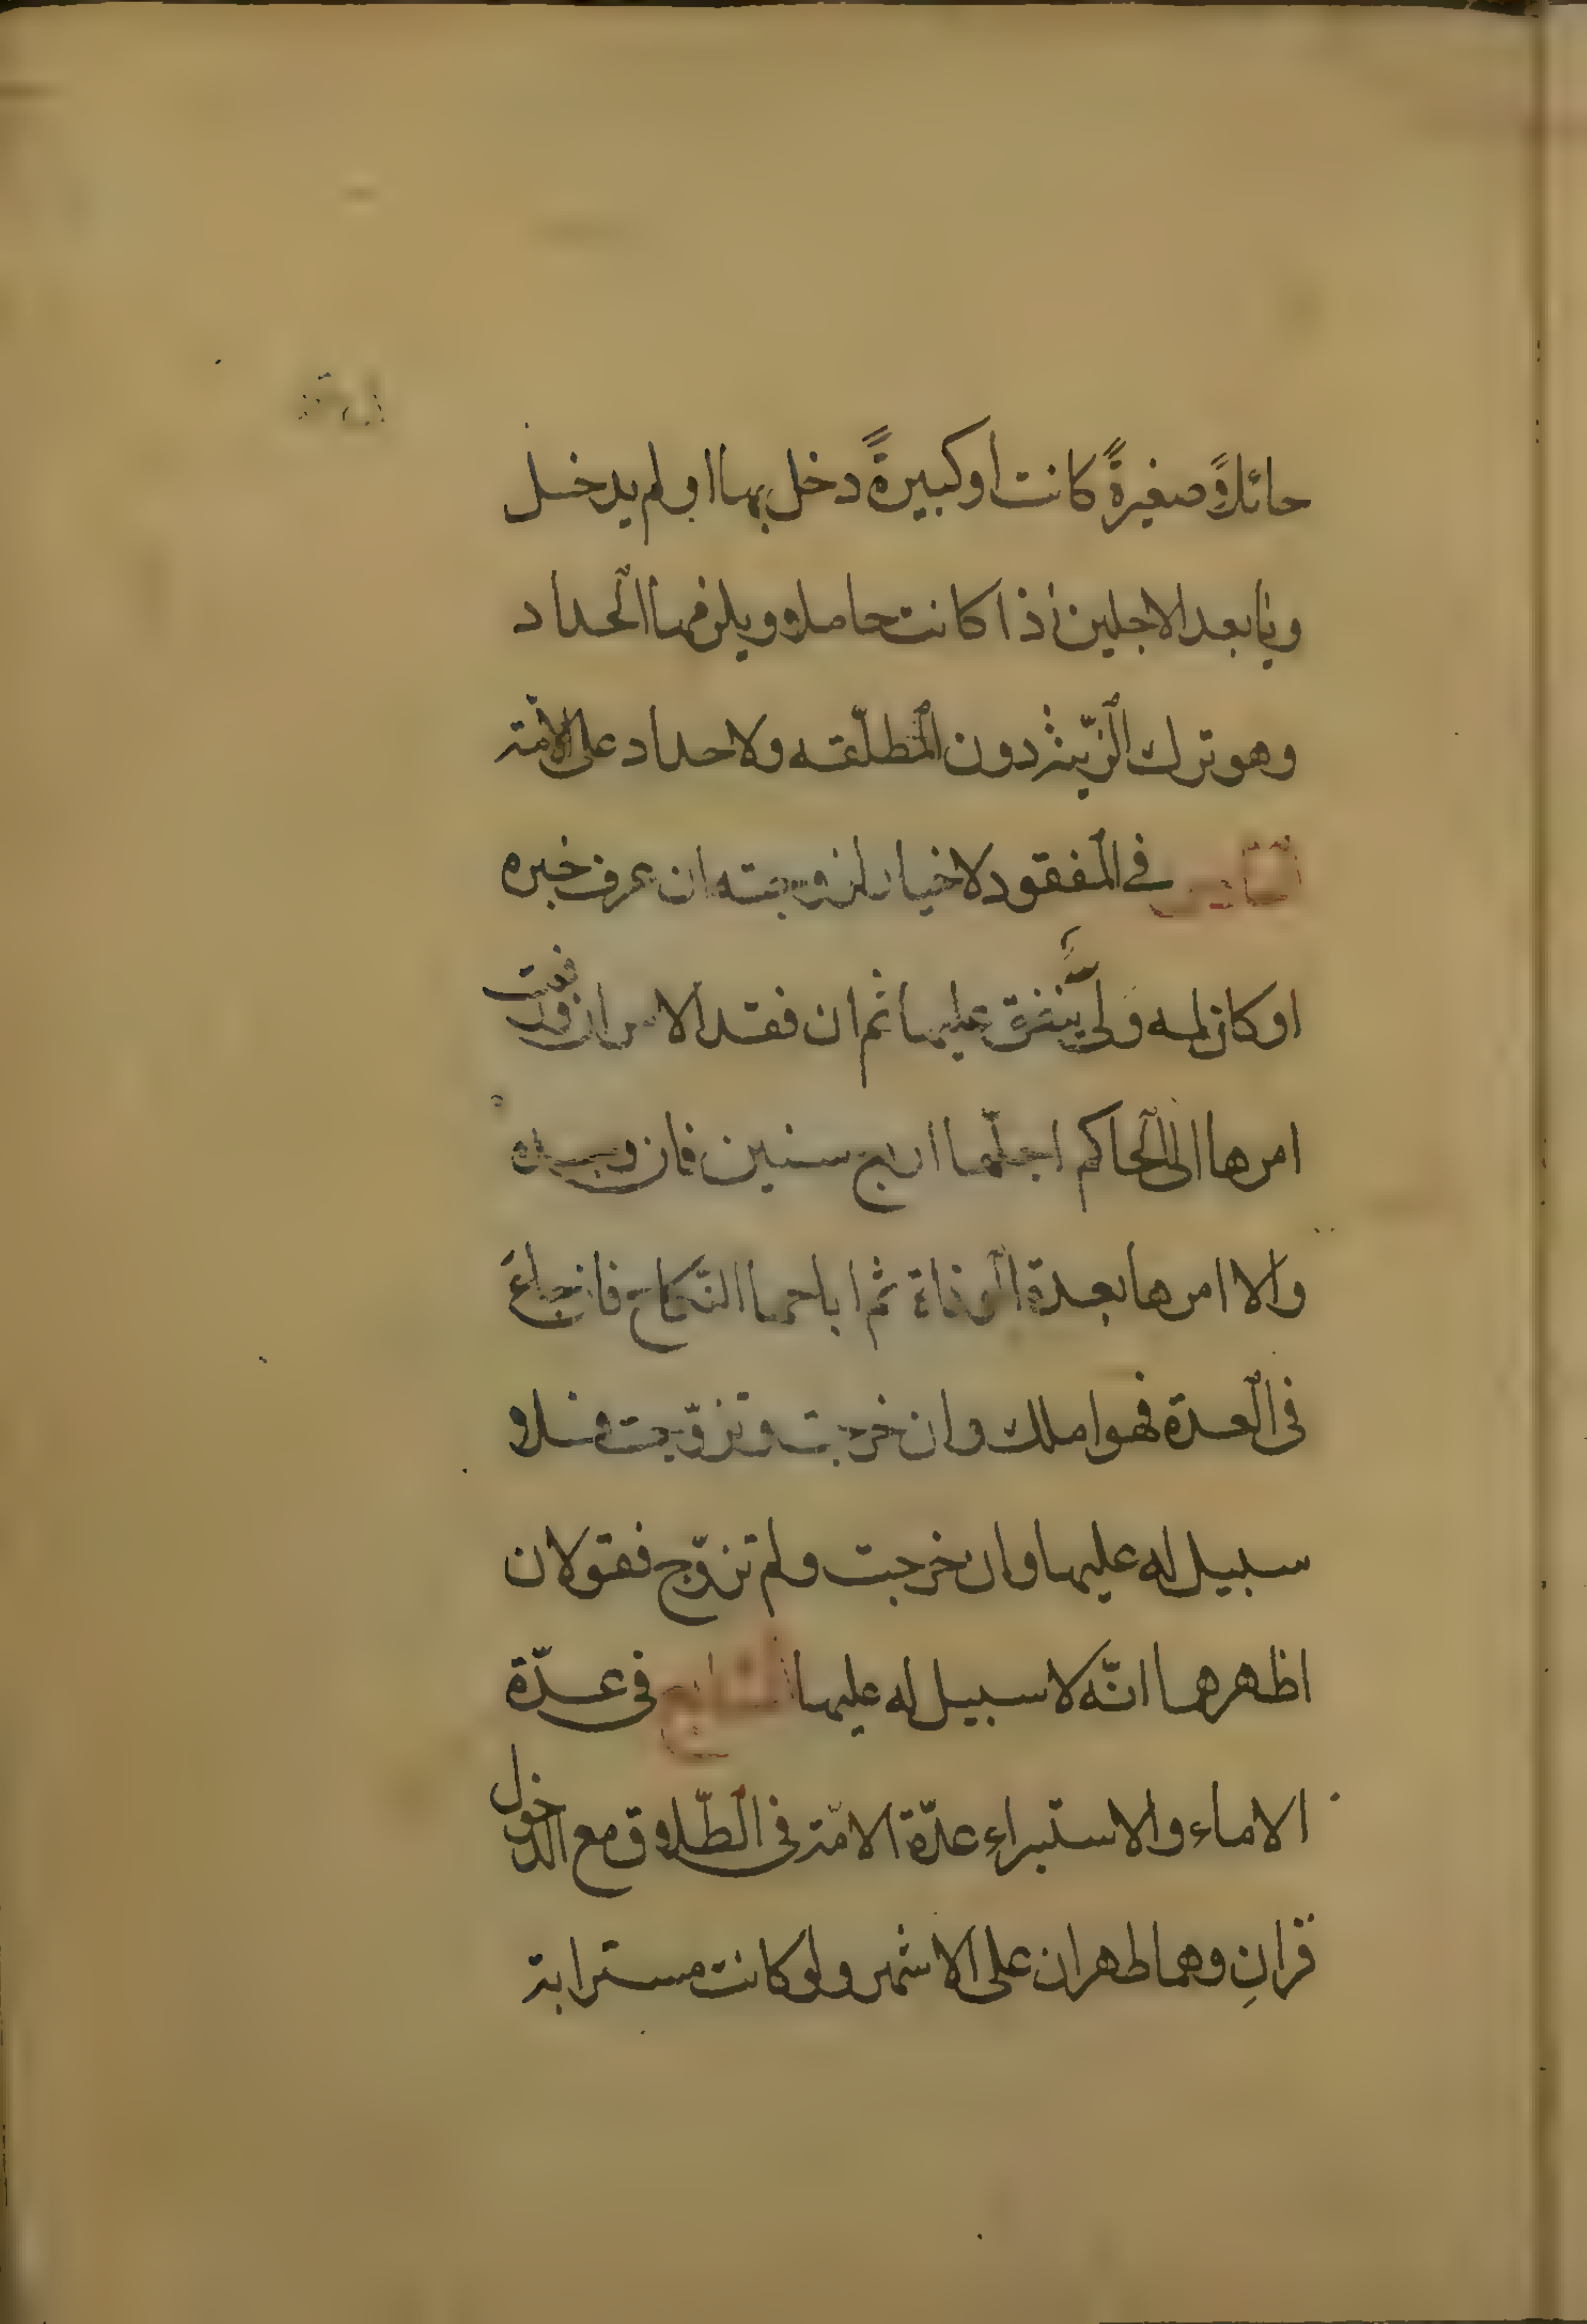 حائلاً صغيرةً كانت او كبيرةً دخل بها او لم يدخل
وبابعد الاجلين اذا كانت حاملا ويلزمها الحداد
وهو ترك الزّينة دون المطلّقه ولا حداد على الامة
في المفقود لا خيار لزوجته ان عرف خبره
او كان له ولىّ ينفق عليها ثم ان فقد الامران فرفعت
امرها الى الحاكم اجلّها اربع سنين فان وجده
والا امرها بعدة الوفاة ثم اباحها النّكاح فان جاء
فى العدة فهو املك وان خرجت وتزوّجت فلا
سبيل له عليها وان خرجت ولم تزوّج فقولان
اظهرهما انّه لا سبيل له عليها السابع فى عدّة
الاماء والاستبراء عدّة الامة فى الطّلاق مع الدخول
قرانِ وهما طهران على الاشهر ولو كانت مسترابة